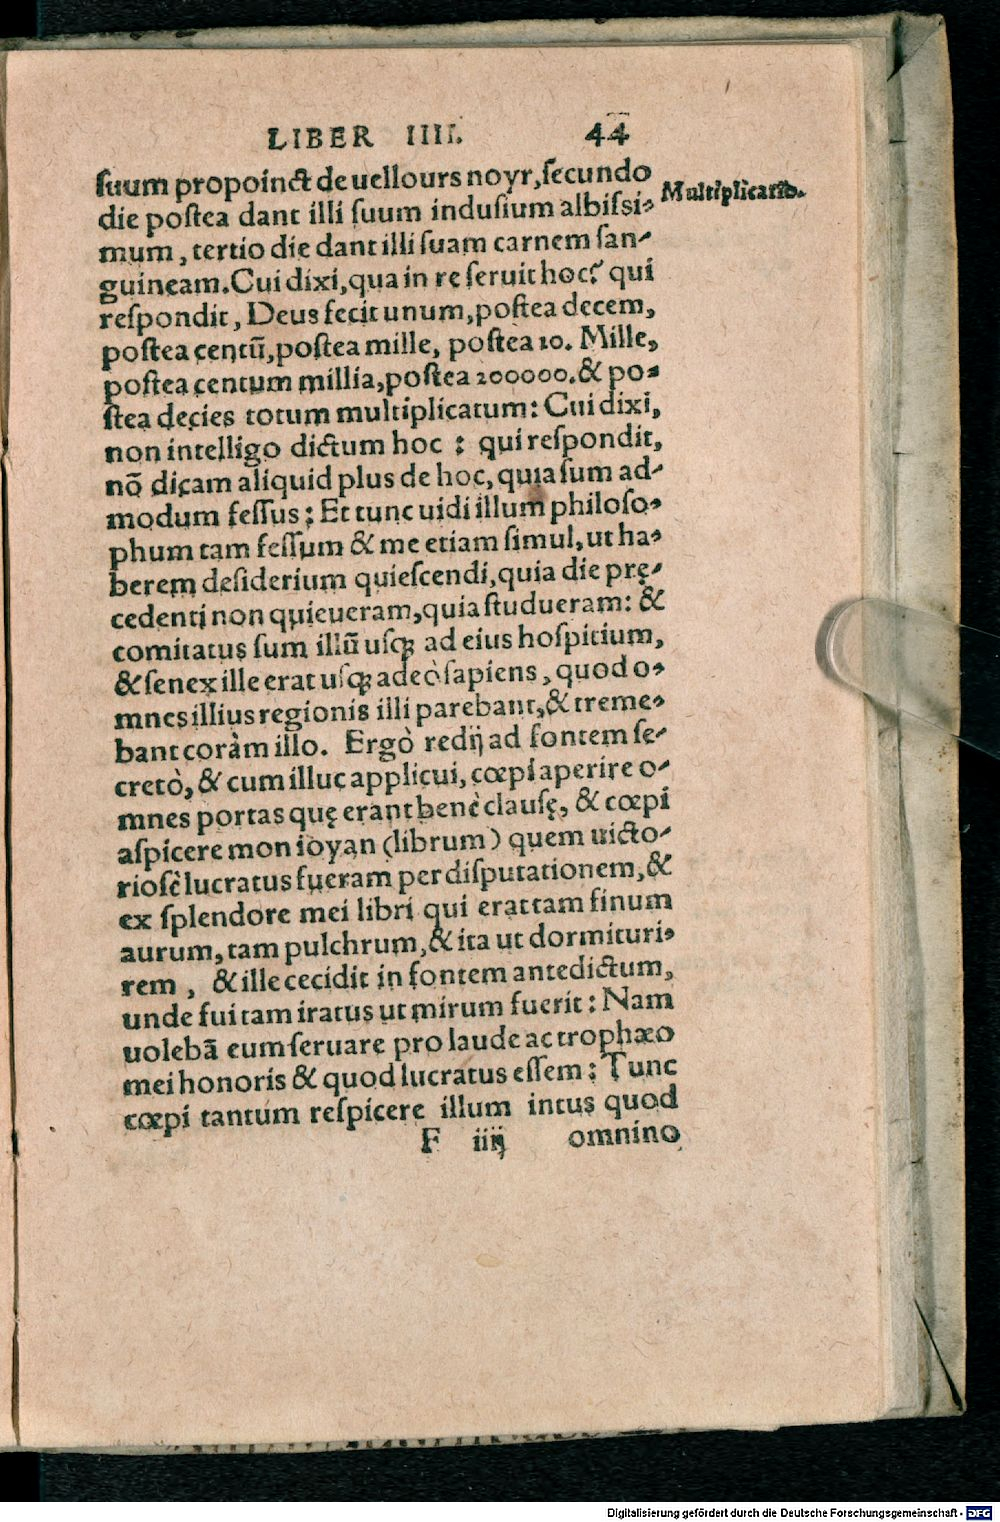 LIBER IIII. 44
suum propoinct de uellours noyr, secundo
Multiplicatio.
die postea dant illi suum indusium albissi-
mum, tertio die dant illi suam carnem san-
guineam. Cui dixi, qua in re seruit hoc? qui
respondit, Deus fecit unum, postea decem,
postea centũ, postea mille, postea 10. Mille,
postea centum millia, postea 200000. & po-
stea decies totum multiplicatum: Cui dixi,
non intelligo dictum hoc: qui respondit,
nõ dicam aliquid plus de hoc, quia sum ad-
modum fessus: Et tunc uidi illum philoso-
phum tam fessum & me etiam simul, ut ha-
berem desiderium quiescendi, quia die prę-
cedenti non quieueram, quia studueram: &
comitatus sum illũ usq; ad eius hospitium,
& senex ille erat usq; adeò sapiens, quod o-
mnes illius regionis illi parebant, & treme-
bant coràm illo. Ergò redij ad fontem se-
cretò, & cum illuc applicui, cœpi aperire o-
mnes portas quę erant benè clausę, & cœpi
aspicere mon ioyan (librum) quem uicto-
riosè lucratus fueram per disputationem, &
ex splendore mei libri qui erat tam finum
aurum, tam pulchrum, & ita ut dormituri-
rem, & ille cecidit in fontem antedictum,
unde fui tam iratus ut mirum fuerit: Nam
uolebã eum seruare pro laude ac trophæo
mei honoris & quod lucratus essem: Tunc
cœpi tantum respicere illum intus quod
F iiij omnino
Digitalisierung gefördert durch die Deutsche Forschungsgemeinschaft - DFG